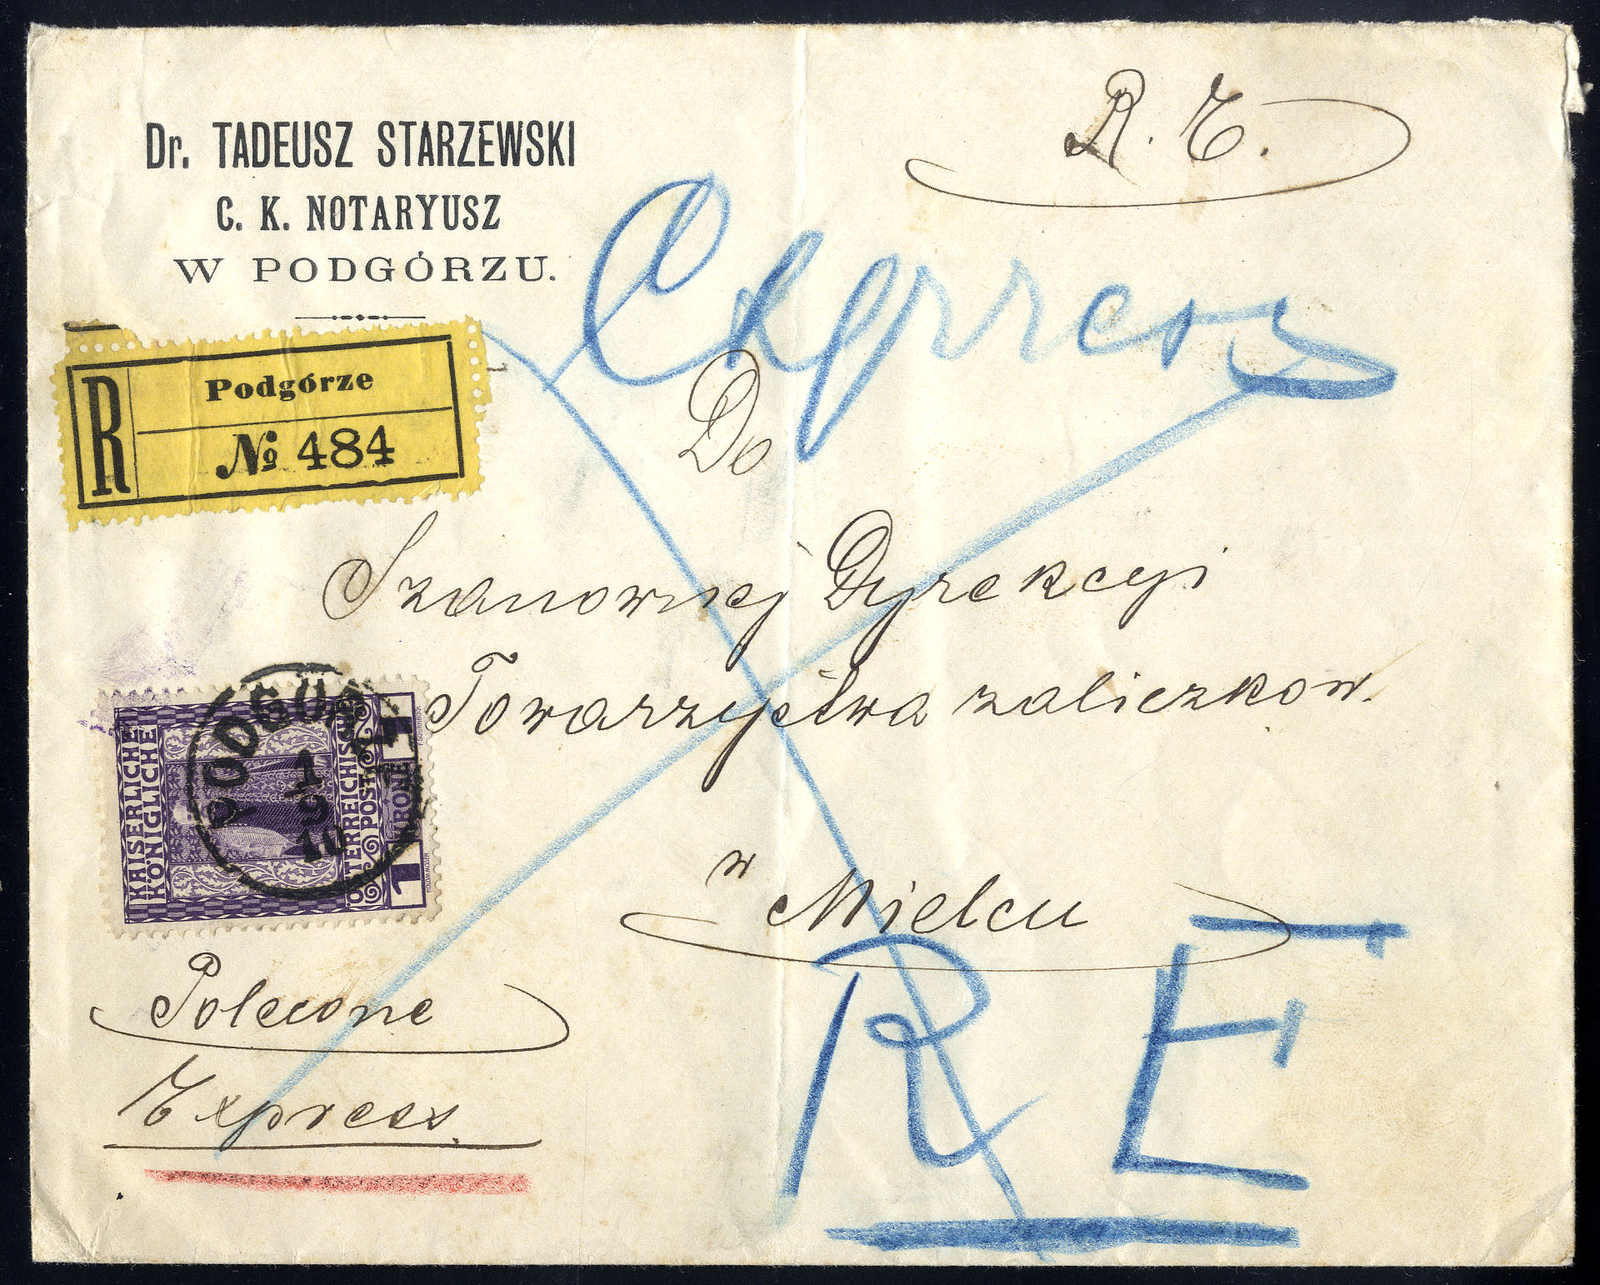 Dr. TADEUSZ STARZEWSKI
C. K. NOTARYUSZ
W PODGÓRZU.
R. E.
Express
R
Podgórze
№ 484
Do
Szanownej Dyrekcyi
Towarzystwa zaliczkow.
w Mielcu
KAISERLICHE
KÖNIGLICHE
ÖSTERREICHISCHE
POST
1 KRONE 1
PODGÓRZE
1
9
10
Polecone
Express.
R E